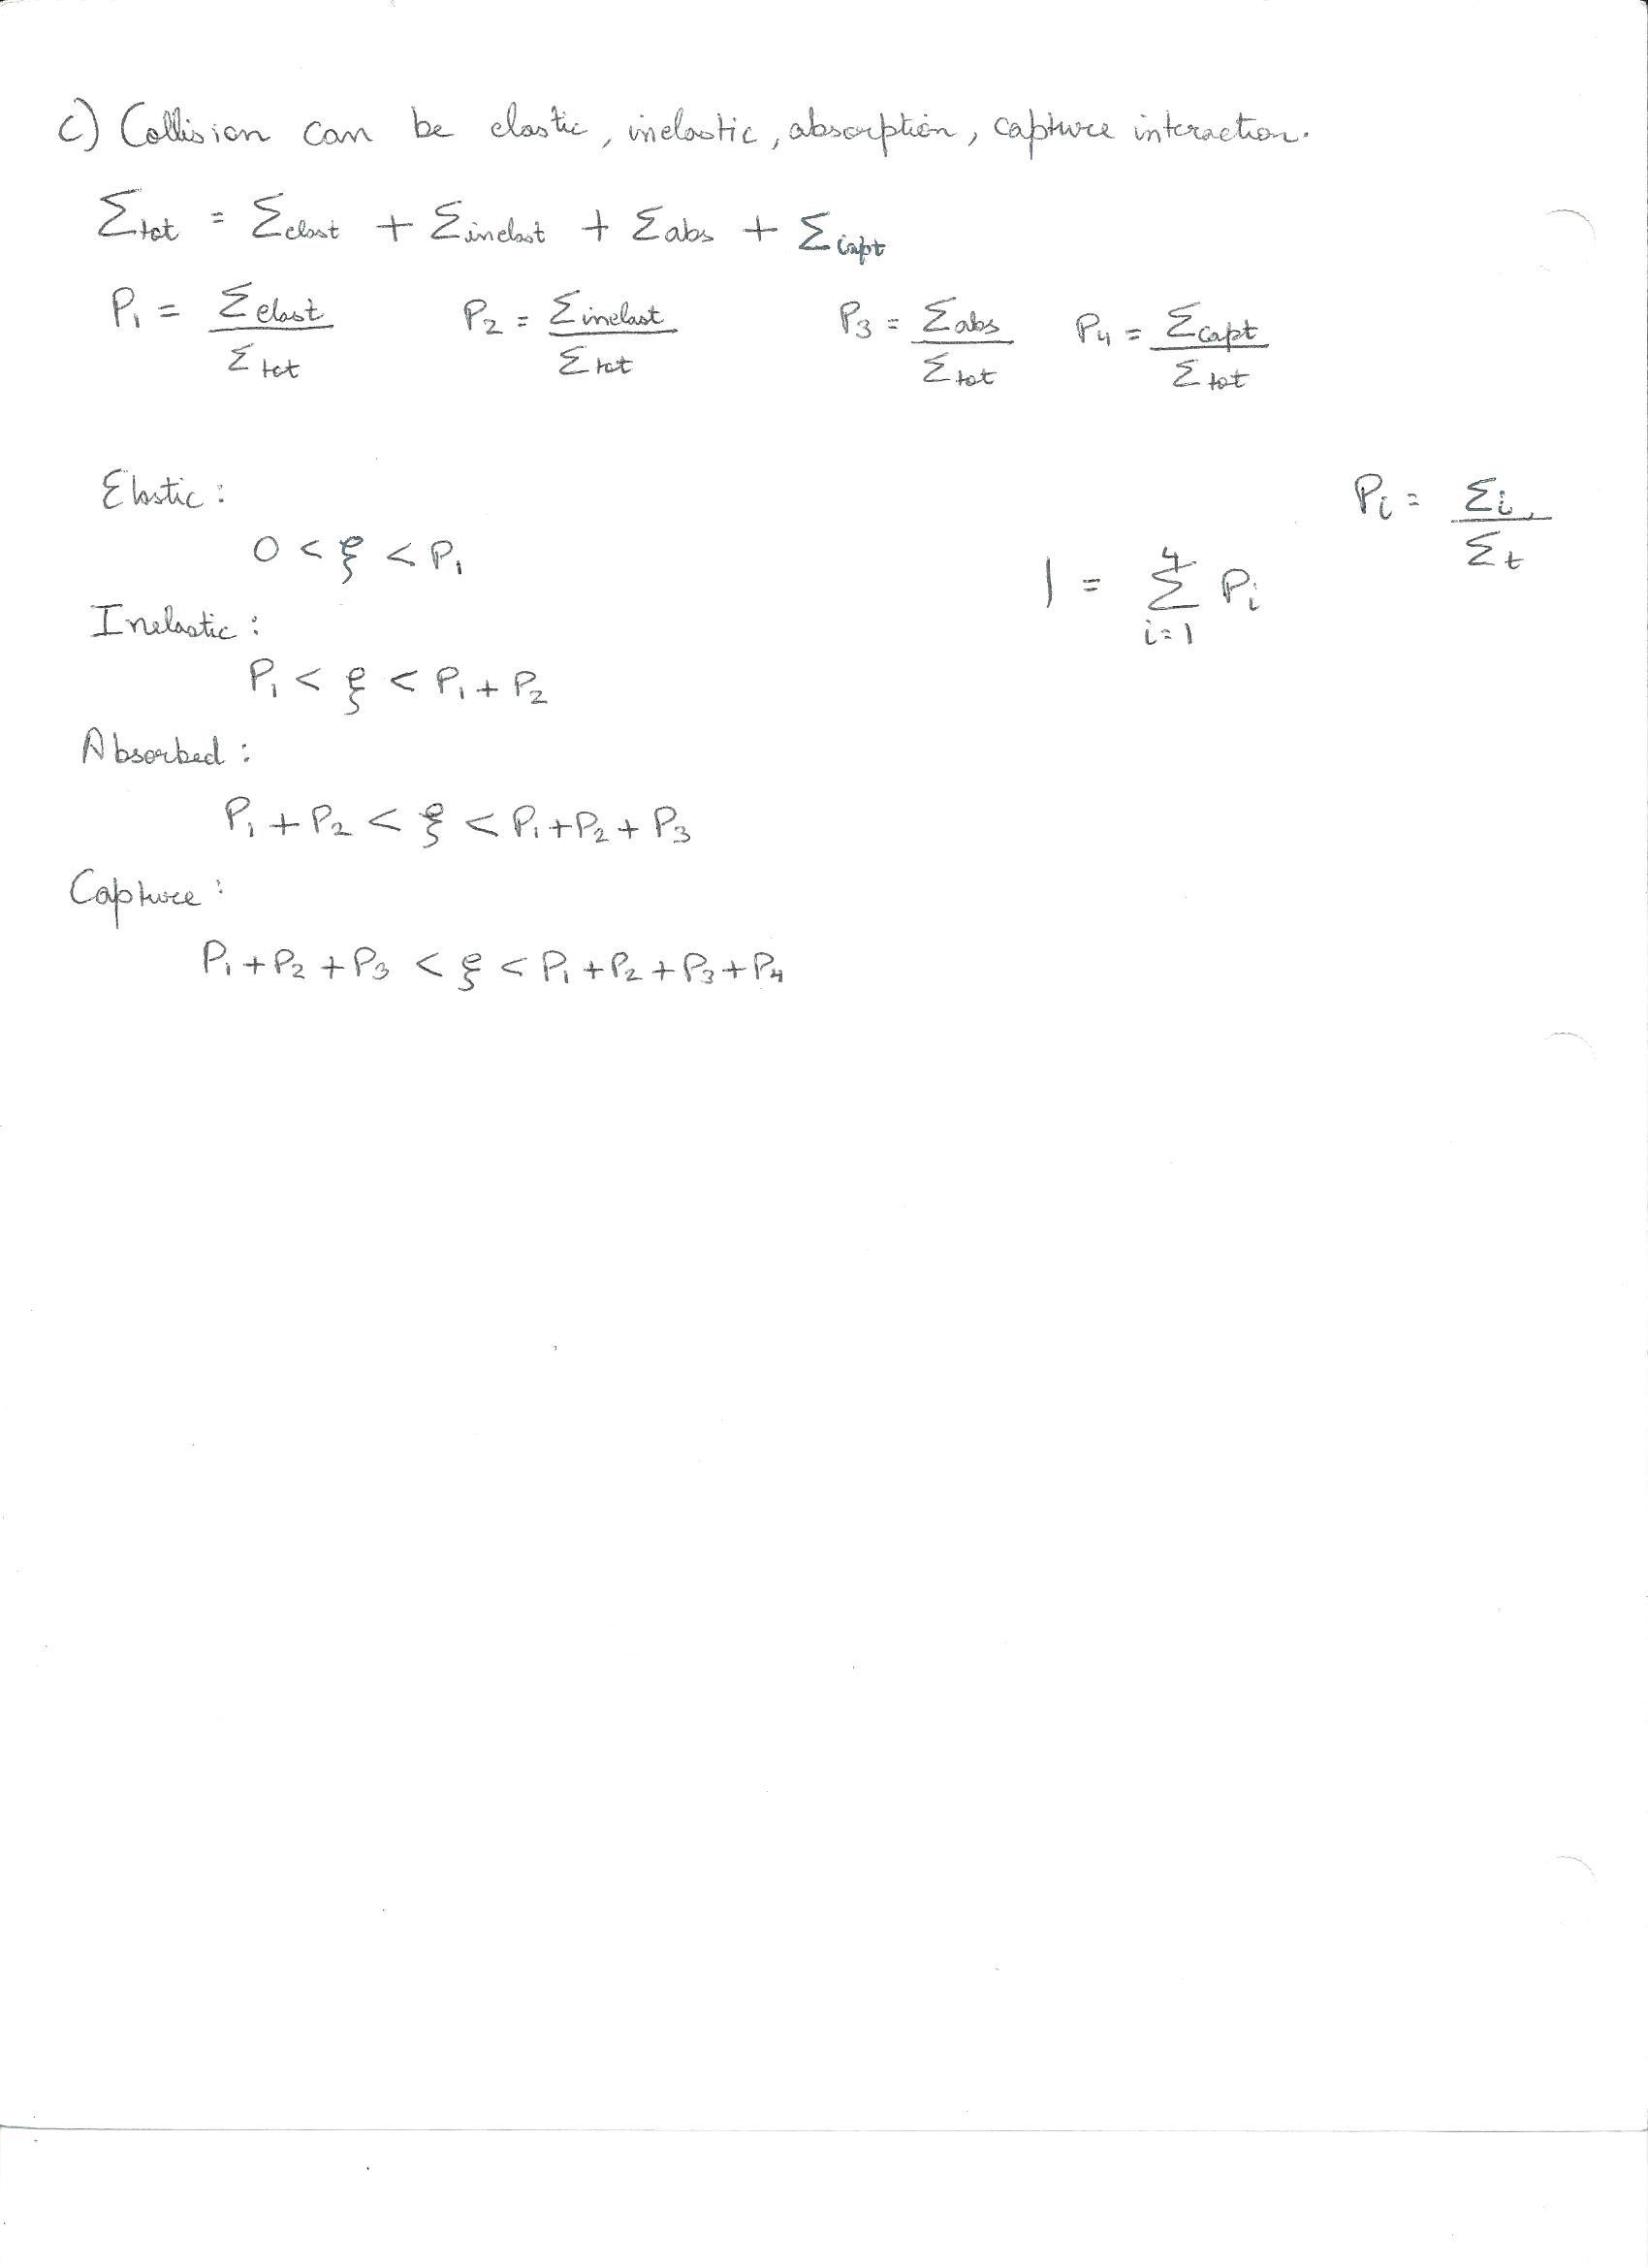 c) Collision can be elastic, inelastic, absorption, capture interaction.
Σtot = Σelast + Σinelast + Σabs + Σcapt
P₁ = Σelast / Σtot P₂ = Σinelast / Σtot P₃ = Σabs / Σtot P₄ = Σcapt / Σtot
Elastic: Pᵢ = Σᵢ / Σt
0 < ξ < P₁ 1 = Σ_{i=1}^{4} Pᵢ
Inelastic:
P₁ < ξ < P₁ + P₂
Absorbed:
P₁ + P₂ < ξ < P₁ + P₂ + P₃
Capture:
P₁ + P₂ + P₃ < ξ < P₁ + P₂ + P₃ + P₄